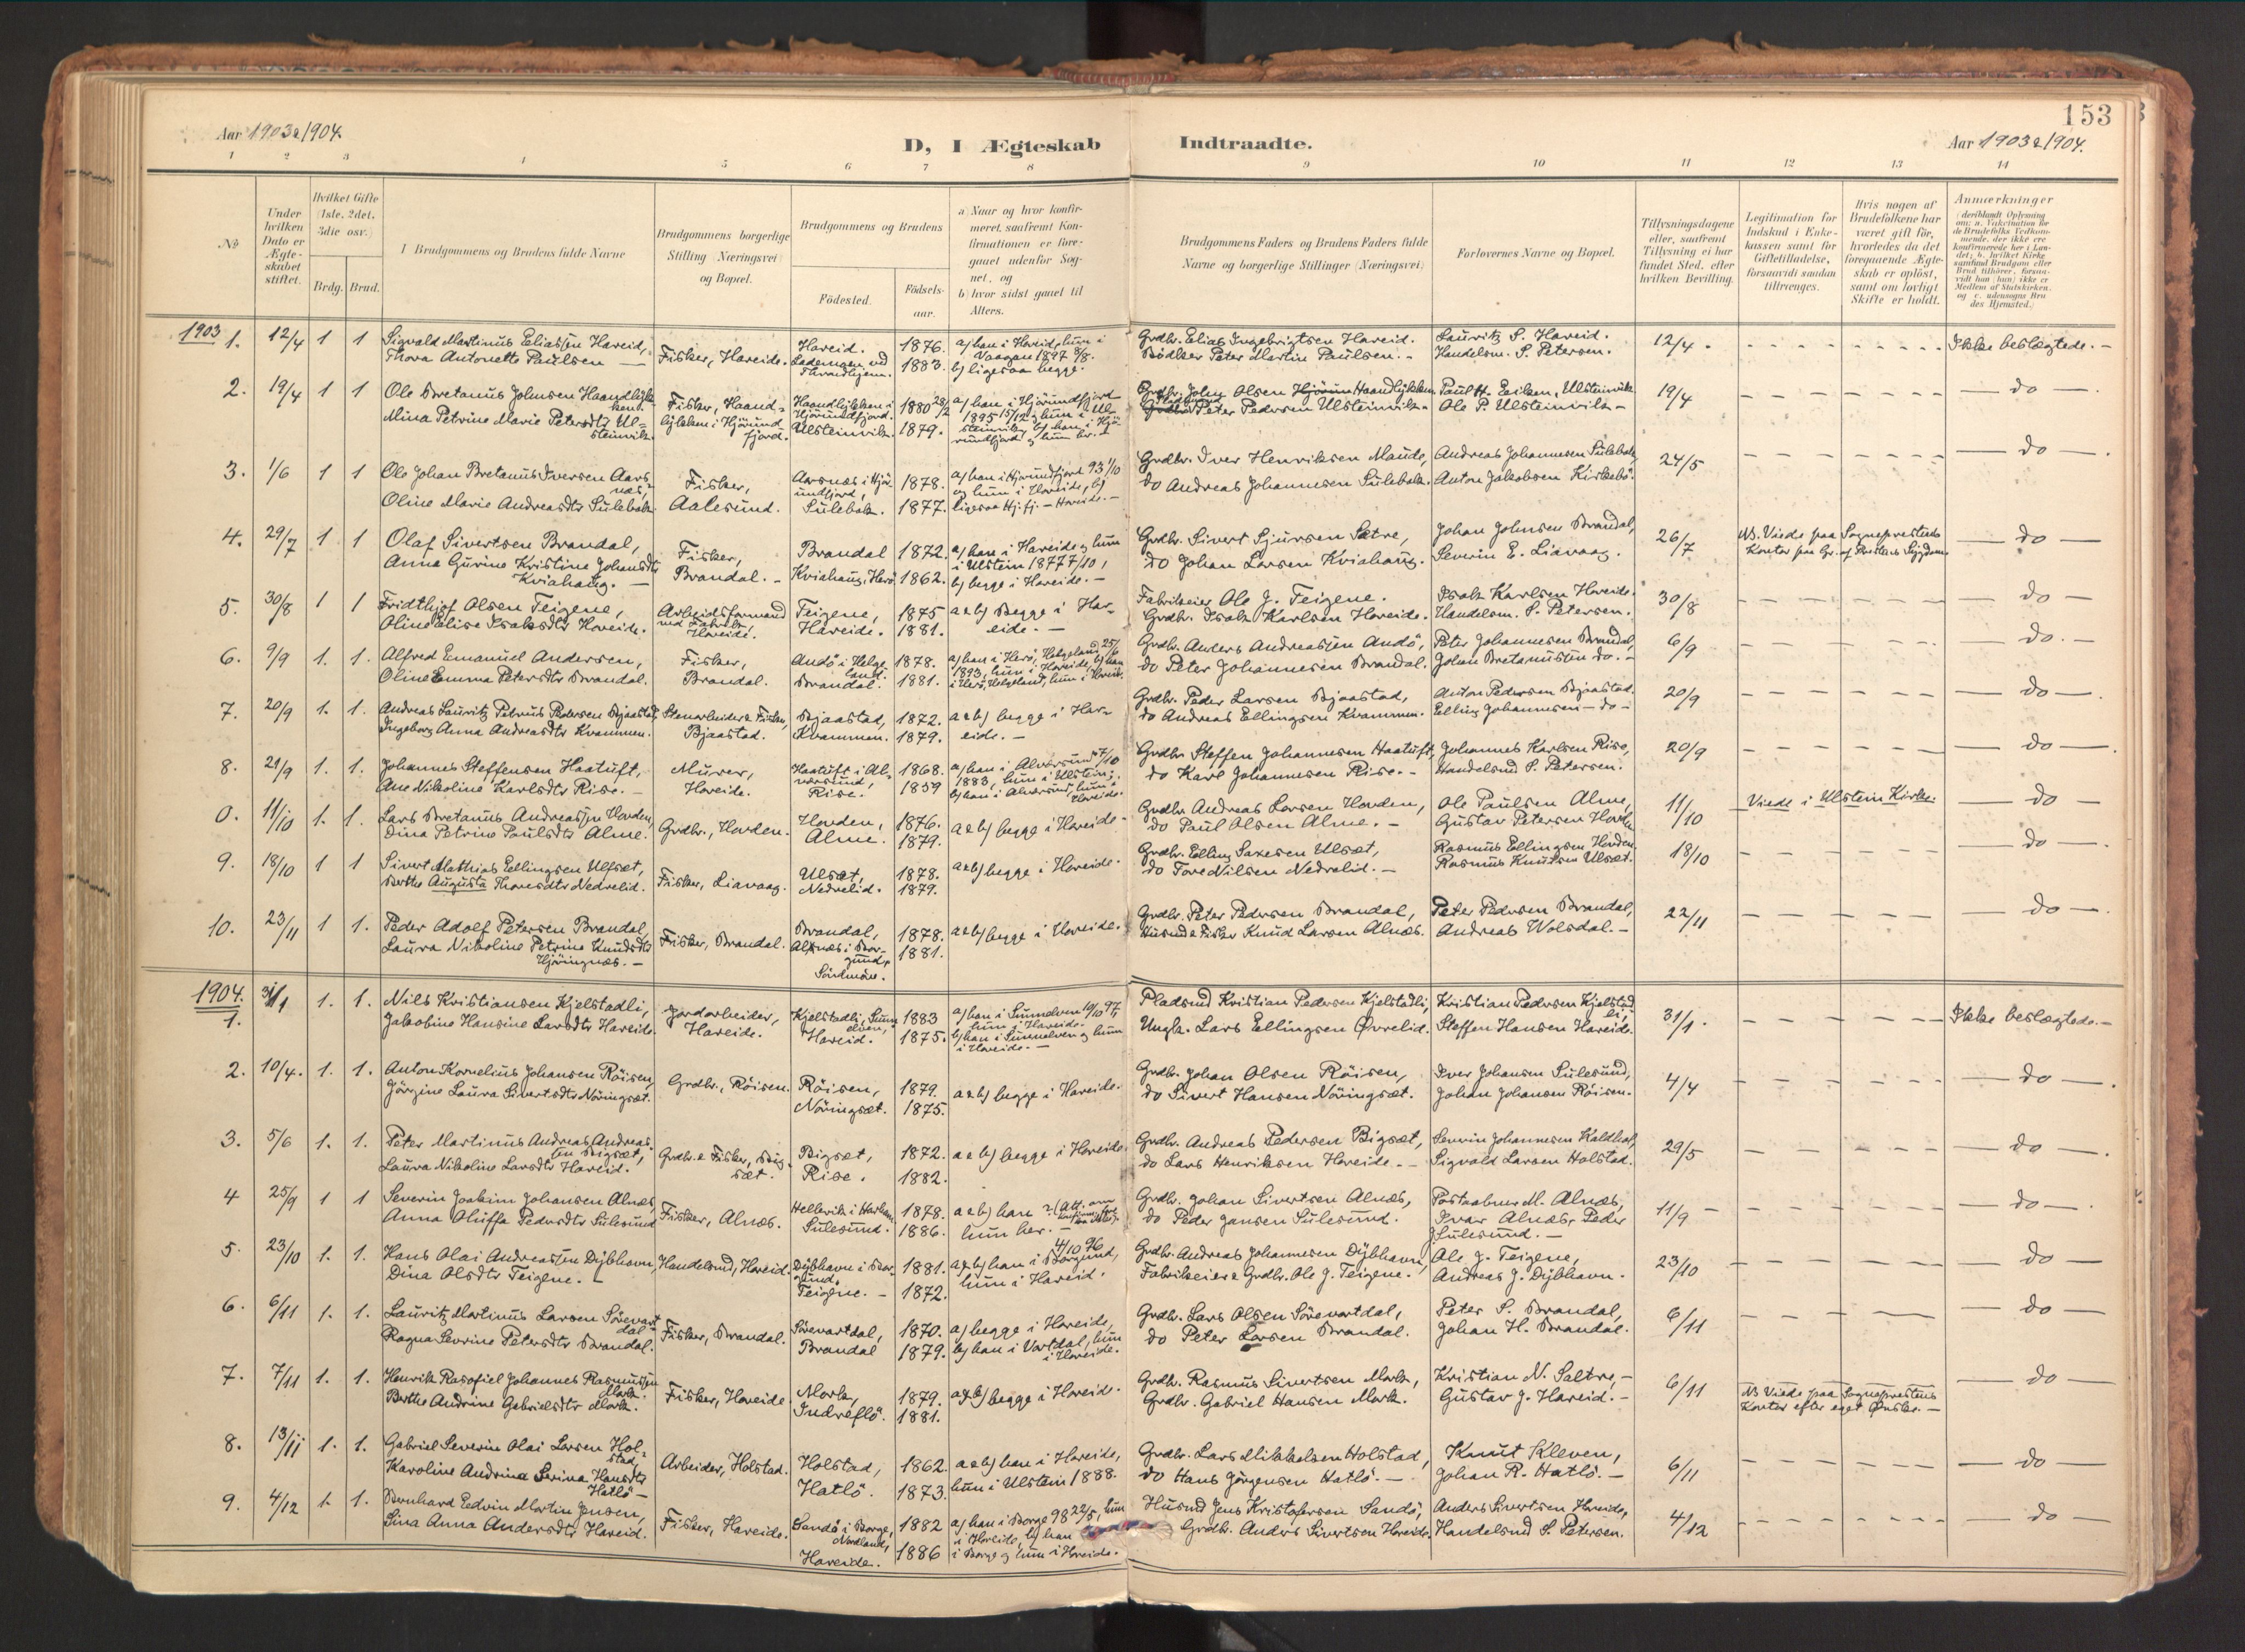 153
Aar 1903 & 1904.
D, I Ægteskab Indtraadte.
Aar 1903 & 1904.
1 2 3 4 5 6 7 8 9 10 11 12 13 14
No
Under hvilken Dato er Ægteskabet stiftet.
Hvilket Gifte (1ste, 2det, 3die osv.)
Brdg. Brud.
Brudgommens og Brudens fulde Navne
Brudgommens borgerlige Stilling (Næringsvei) og Bopæl.
Brudgommens og Brudens
Födested.
Födselsaar.
a) Naar og hvor konfirmeret, saafremt Konfirmationen er foregaaet udenfor Sognet, og
b) hvor sidst gaaet til Alters.
Brudgommens Faders og Brudens Faders fulde Navne og borgerlige Stillinger (Næringsvei)
Forlovernes Navne og Bopæl.
Tillysningsdagene eller, saafremt Tillysning ei har fundet Sted, efter hvilken Bevilling.
Legitimation for Indskud i Enkekassen samt for Giftetilladelse, forsaavidt saadan tiltrænges.
Hvis nogen af Brudefolkene har været gift för, hvorledes da det foregaaende Ægteskab er oplöst, samt om lovligt Skifte er holdt.
Anmærkninger
1903 1. 12/4 1 1 Sigvald Martinus Eliassen Hareid, Thora Antonette Paulsen — Fisker, Hareide. Hareid. Lademoen ved Throndhjem. 1876. 1883. a) han i Hareid, hun i Vaagan 1897 b) ligesaa begge. Grdbr. Elias Ingebrigtsen Hareid. Bödker Peter Martin Paulsen. - Lauritz S. Hareid. Handelsm. S. Petersen. 12/4. Ikke beslægtede. -
2. 19/4 1 1 Ole Bretanus Johnsen Haandlykken. Mina Petrine Marie Petersdtr Ulsteinvik. Fisker, Haandlykken i Hjörundfjord. Haandlykken i Hjörundfjord. Ulsteinvik. 1880 1879. a) han i Hjörundfjord 1895 hun i Ulsteinvik, b) han i Hjörundfjord og hun her. Grdbr. John Olsen Haandlykken Peter Pedersen Ulsteinvik. Paul H. Eiken, Ulsteinvik Ole P. Ulsteinvik - 19/4 — do —.
3. 1/6 1 1 Ole Johan Bretanus Iversen Aarsnæs, Oline Marie Andreasdtr Sulebak. Fisker, Aalesund. Aarsnæs i Hjörundfjord, Sulebak. 1878. 1877. a) han i Hjörundfjord 93 1/10 og hun i Hareide, b) ligesaa Hj.fj. - Hareide. - Grdbr. Iver Henriksen Maude, do Andreas Johannesen Sulebak. Andreas Johannesen Sulebak, Anton Jakobsen Kirkebö. 24/5 — do —.
4. 29/7 1 1 Olaf Sivertsen Brandal, Anna Gurine Kristine Johansdtr Kviahaug. - Fisker, Brandal. - Brandal Kviahaug, Herö 1872. 1862. a) han i Hareide og hun i Ulstein 1877 7/10, b) begge i Hareide. - Grdbr. Sivert Sjursen Sætre, do Johan Larsen Kviahaug. Johan Johnsen Brandal, Severin E. Liavaag. 26/7 NB. Viede paa Sogneprestens Kontor paa Gr. af Prestens Sygdom — do —
5. 30/8 1 1 Fridthjof Olsen Teigene, Oline Elise Isaksdtr Hareide. Arbeidsformand ved Fabrik, Hareide. Teigene, Hareide. 1875 1881. a & b) Begge i Hareide. - Fabrikeier Ole J. Teigene. Grdbr. Isak Karlsen Hareide. Isak Karlsen Hareide. Handelsm. S. Petersen. 30/8 — do —
6. 9/9 1. 1. Alfred Emanuel Andersen, Oline Emma Petersdtr Brandal. Fisker, Brandal. Andö i Helgeland. Brandal. 1878. 1881. a) han i Herö, Helgeland 25/6 1893, hun i Hareide, b) han i Herö, Helgeland, hun i Hareid. Grdbr. Anders Andreassen Andö, do Peter Johannesen Brandal. Peter Johannesen Brandal, Johan Bretanussen do. - 6/9 — do. —
7. 20/9 1. 1. Andreas Lauritz Petrus Pedersen Bjaastad, Ingeborg Anna Andreasdtr Kvammen. Stenarbeider & Fisker, Bjaastad. Bjaastad, Kvammen. 1872. 1879. a & b) begge i Hareide. - Grdbr. Peder Larsen Bjaastad, do Andreas Ellingsen Kvammen. Anton Pedersen Bjaastad. Elling Johannesen - do - 20/9 — do —.
8. 21/9 1. 1. Johannes Steffensen Haatuft, Ane Nikoline Karlsdtr Rise. - Murer, Hareide. Haatuft i Alversund, Rise. 1868. 1859 a) han i Alversund 7/10 1883, hun i Ulstein, b) han i Alversund, hun i Hareide. Grdbr Steffen Johannesen Haatuft, do Karl Johannesen Rise. - Johannes Karlsen Rise, Handelsmd S. Petersen. 20/9 — do —.
0. 11/10 1. 1. Lars Bretanus Andreassen Hovden, Dina Petrine Paulsdtr Alme. Grdbr., Hovden. Hovden, Alme. 1876. 1879. a & b) begge i Hareide - Grdbr Andreas Larsen Hovden, do Paul Olsen Alme. - Ole Paulsen Alme, Gustav Petersen Hovden. 11/10 Viede i Ulstein Kirke. — do —
9. 18/10 1 1 Sivert Mathias Ellingsen Ulsæt, Berthe Augusta Thoresdtr Nedrelid. Fisker, Liavaag. Ulsæt, Nedrelid. 1878. 1879. a & b) begge i Hareide. Grdbr. Elling Saxesen Ulsæt, do Tore Nilsen Nedrelid. - Rasmus Ellingsen Hovden. Rasmus Knutsen Ulsæt. 18/10 — do —.
10. 23/11 1 1. Peder Adolf Petersen Brandal, Laura Nikoline Petrine Knudsdtr Hjöringnæs. - Fisker, Brandal. Brandal, Alnæs i Borgund, Söndmöre. 1878. 1881. a & b) begge i Hareide. Grdbr. Peter Pedersen Brandal, Husmd & Fisker Knud Larsen Alnæs. Peter Pedersen Brandal, Andreas Wolsdal. - 22/11 — do —.
1904. 1. 31/1 1. 1. Nils Kristiansen Kjelstadli, Jakobine Hansine Larsdtr Hareid. Jordarbeider, Hareide. Kjelstadli, Sunnelven, Hareid. 1883 1875. a) han i Sunnelven 10/10 97, hun i Hareide. b) han i Sunnelven og hun i Hareide. - Pladsmd Kristian Pedersen Kjelstadli, Ungk. Lars Ellingsen Øvrelid. Kristian Pedersen Kjelstadli, Steffen Hansen Hareide. 31/1. Ikke beslægtede. -
2. 10/4. 1. 1. Anton Kornelius Johansen Röisen, Jörgine Laura Sivertsdtr Nöringsæt. Grdbr., Röisen. Röisen, Nöringsæt. 1879. 1875. a & b) begge i Hareide. Grdbr. Johan Olsen Röisen, do Sivert Hansen Nöringsæt. Iver Johansen Sulesund, Johan Johansen Röisen. 4/4 — do —.
3. 5/6 1. 1. Peter Martinus Andreas Andreassen Bigsæt, Laura Nikoline Larsdtr Hareid. Grdbr. & Fisker, Bigsæt. Bigsæt, Rise. 1872. 1882. a & b) begge i Hareide. Grdbr. Andreas Pedersen Bigsæt, do Lars Henriksen Hareide. - Severin Johannesen Kaldhol, Sigvald Larsen Holstad. 29/5 — do —.
4 25/9 1 1 Severin Joakim Johansen Alnæs, Anna Oluffa Pedersdtr Sulesund Fisker, Alnæs. Hellevik i Harham Sulesund. 1878. 1886. a & b) han ? hun her. - Grdbr. Johan Sivertsen Alnæs, do Peder Jansen Sulesund. Postaabner M. Alnæs, Ivar Alnæs, Peder J. Sulesund. - 11/9 — do —.
5. 23/10 1. 1. Hans Olai Andreassen Dybhavn, Dina Olsdtr Teigene. - Handelsmd, Hareid. Dybhavn i Borgund. Teigene. - 1881. 1872. a & b) han i Borgund, 4/10 96 hun i Hareid. Grdbr. Andreas Johannesen Dybhavn, Fabrikeier & Grdbr. Ole J. Teigene. Ole J. Teigene, Andreas J. Dybhavn. 23/10 — do —
6. 6/11 1. 1. Lauritz Martinus Larsen Sörevartdal Ragna Sevrine Petersdtr Brandal. Fisker, Brandal. Sörevartdal, Brandal 1870. 1879. a) begge i Hareide, b) han i Vartdal, hun i Hareide. Grdbr. Lars Olsen Sörevartdal, do Peter Larsen Brandal. Peter S. Brandal, Johan H. Brandal. 6/11 — do —
7. 7/11 1. 1. Henrik Rasofiel Johannes Rasmussen Mork. Berthe Andrine Gabrielsdtr Mork. Fisker, Hareide. Mork, Indreflö. 1879. 1881. a & b) begge i Hareid. Grdbr. Rasmus Sivertsen Mork, Grdbr. Gabriel Hansen Mork. Kristian N. Saltre, - Gustav J. Hareid. - 6/11 NB Viede paa Sogneprestens Kontor efter eget Ønske. — — do —
8. 13/11 1. 1. Gabriel Severin Olai Larsen Holstad, Karoline Andrine Serina Hansdtr Hatlö - Arbeider, Holstad. Holstad, Hatlö. 1862. 1873. a & b) han i Hareide, hun i Ulstein 1888. Grdbr. Lars Mikkelsen Holstad, do Hans Jörgensen Hatlö. - Knut Kleven, Johan R. Hatlö. - 6/11 — do —
9. 4/12 1. 1. Bernhard Edvin Martin Jensen, Lina Anna Andersdtr Hareid. Fisker, Hareide. Sandö i Borge, Nordland, Hareide. 1882 1886 a) han i Borge 98 22/5, hun i Hareide, b) han i Borge og hun i Hareide. Husmd Jens Kristofersen Sandö, Grdbr. Anders Sivertsen Hareide. Anders Sivertsen Hareide, Handelsmd S. Petersen. 4/12 — do —